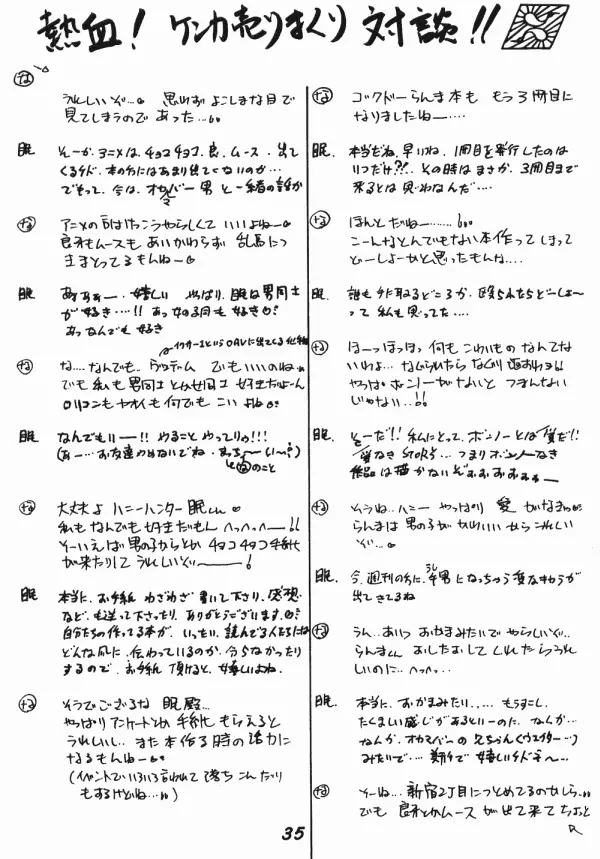 熱血! ケンカ売りまくり 対談!!
な ゴクドーらんま本も もう3冊目に
なりましたねー‥‥
眠. 本当だね。早いね。1冊目を発行したのは
いつだけ?!. その時は まさか、3冊目まで
来るとは 思わなんだ‥‥
な ほんとだねー‥‥‥
こーんなとんでもない本作ってしまって
どーしよーかと思ったもんな‥‥
眠. 誰も 手取るどころか、殴られたらどーしよ〜
って 私も思ってた‥‥
な ほーっほっほっ 何も こわいもの なんてな
いわよ‥ なぐられたら なぐり返すわよ!!
やっぱ ボンノーがないと つまんない
じゃない‥!!
眠. そーだ!! 私にとって、ボンノーとは 愛だ!!
愛なき STORY‥ つまり ボンノーなき
作品は 描かないぞぉぉぉぉぉぉー
な そうね‥ハニー やっぱり 愛 がなきゃ
らんまは 男の子が かわいいから うれしい
ぞ‥。
眠. 今、週刊の方に、牛男になっちゃう変なキャラが
うし
出てきてるね
な うん‥あいつ おかまみたいで やらしいぞ‥
らんまくん おしたおして くれたら うれ
しいのに‥ へへっ‥
眠. 本当に、おかまみたい‥‥ もうすこし
たくましい感じがあるといーのに、なんか‥
なんか、オカマバーの 兄ちゃん(ウエイター‥)
みたいで‥‥ 期待で 嬉しいけど〜‥
な そーね‥‥新宿2丁目につとめてるのかしら‥
でも 良牙とかムースが出て来て ちょっと
な うれしいぞ‥。 思わず よこしまな目で
見てしまうので あった‥‥
眠 そーか、アニメは、チョコチョコ、良、ムース、出て
くるけど、本の方には あまり出てこないのか‥
でもって、今は、オカマバー男と 一緒の話か
な アニメの 方はけっこうやらしくて いいよねー。
良牙もムースも あいかわらず 乱馬につ
きまとってるもんねー。
眠 あぁぁー‥嬉しい やっぱり、眠は男同士
が好き‥‥!! あっ 女の子同士も 好き♡!
あっ なんでも 好き
な な‥‥なんでも‥ でもいいのね
でも 私も 男同士 とか女同士 好きだよーん
ロリコンも ヤオイも 何でも こいよね♡
眠 なんでもいー!! やること やってりゃ!!!
(あー‥お友達のめないでね‥
のこと
な 大丈夫よ ハニーハンター 眠くん。
私も なんでも 好きだもん へっへっへー!!
そーいえば 男の子からとか チョコチョコ手紙
が来たりして うれしいぞー!
眠 本当に、お手紙 わざわざ 書いて下さり、感想
なども送って下さったり、ありがとうございます♡
自分たちの作ってる本が、いったい、読んでる人たちには
どんな風に、伝わっているのか、分らなかったり
するので、お手紙 頂けると、嬉しいよね。
な そうでござるな 眠殿‥‥
やっぱり アンケートとか 手紙 もらえると
うれしいし‥ また本作る時の活力に
なるもんねー。
(イベントで いろいろ言われて 落ちこんだり
もするけどね‥‥)
35